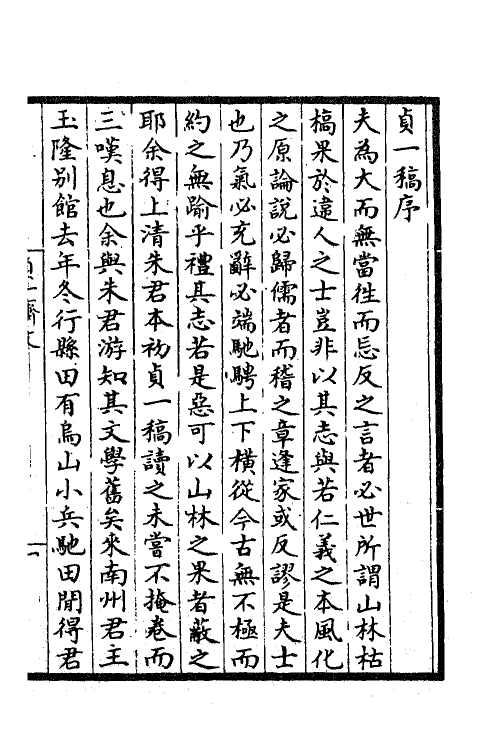 貞一稿序
夫為大而無當徃而忘反之言者必世所謂山林枯
槁果於違人之士豈非以其志與若仁義之本風化
之原論說必歸儒者而稽之章逢家或反謬是夫士
也乃氣必充辭必端馳騁上下橫從今古無不極而
約之無踰乎禮其志若是惡可以山林之果者蔽之
耶余得上清朱君本初貞一稿讀之未嘗不掩卷而
三嘆息也余與朱君游知其文學舊矣來南州君主
玉隆别館去年冬行縣田有烏山小兵馳田閒得君